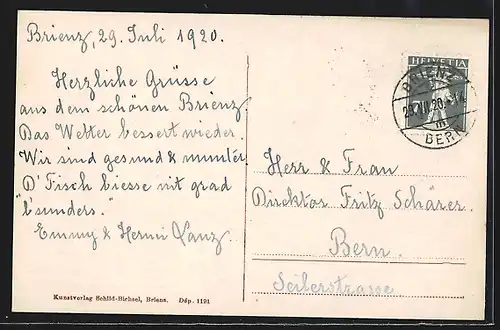 Brienz, 29. Juli 1920.
Herzliche Grüsse
aus dem schönen Brienz
Das Wetter bessert wieder.
Wir sind gesund & munter.
D'Fisch biesse nit grad
"b'sunders."
Emmy & Hermi Lanz.
Kunstverlag Schild-Bichsel, Brienz. Dép. 1191
HELVETIA
BRIENZ
BERN
Herr & Frau
Direktor Fritz Schärer.
Bern.
Seilerstrasse